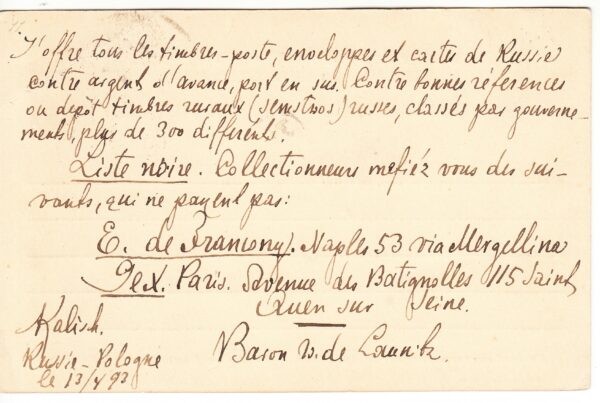 J'offre tous les timbres-poste, enveloppes et cartes de Russie
contre argent d'avance, port en sus. Contre bonnes references
ou depôt timbres ruraux (semstwos) russes, classés par gouverne-
ments, plus de 300 différents.
Liste noire. Collectionneurs mefiéz vous des sui-
vants, qui ne payent pas:
E. de Franony. Naples 53 via Mergellina
Gex. Paris. Avenue des Batignolles 115 Saint
Ouen sur Seine.
Kalisch.
Russie-Pologne
le 13/ 93
Baron de Launitz.